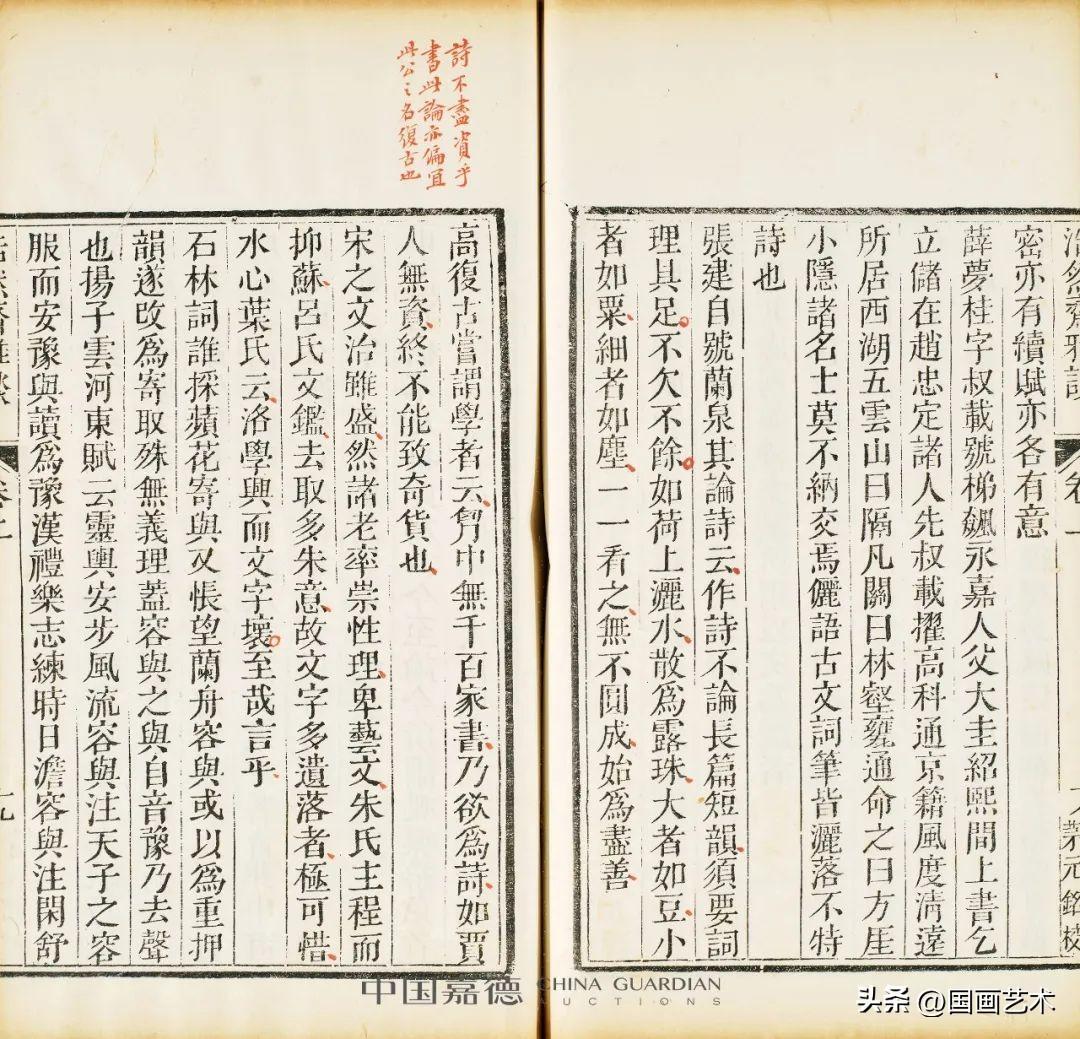 浩然齋雅談
密亦有續賦亦各有意
薛夢桂字叔載號梯飇永嘉人父大圭紹熙間上書乞
立儲在趙忠定諸人先叔載擢高科通京籍風度淸遠
所居西湖五雲山曰隔凡關曰林壑甕通命之曰方厓
小隱諸名士莫不納交焉儷語古文詞筆皆灑落不特
詩也
張建自號蘭泉其論詩云作詩不論長篇短韻須要詞
理具足不欠不餘如荷上灑水散爲露珠大者如豆小
者如粟細者如塵一一看之無不圓成始爲盡善
詩不盡資乎
書此論亦偏宜
此公之名復古也
高復古嘗謂學者云胷中無千百家書乃欲爲詩如賈
人無資終不能致奇貨也
宋之文治雖盛然諸老率崇性理卑藝文朱氏主程而
抑蘇呂氏文鑑去取多朱意故文字多遺落者極可惜
水心葉氏云洛學興而文字壞至哉言乎
石林詞誰採蘋花寄與又悵望蘭舟容與或以爲重押
韻遂改爲寄取殊無義理蓋容與之與自音豫乃去聲
也揚子雲河東賦云靈輿安步風流容與注天子之容
服而安豫與讀爲豫漢禮樂志練時日澹容與注閑舒
中国嘉德 CHINA GUARDIAN
AUCTIONS
头条 @国画艺术